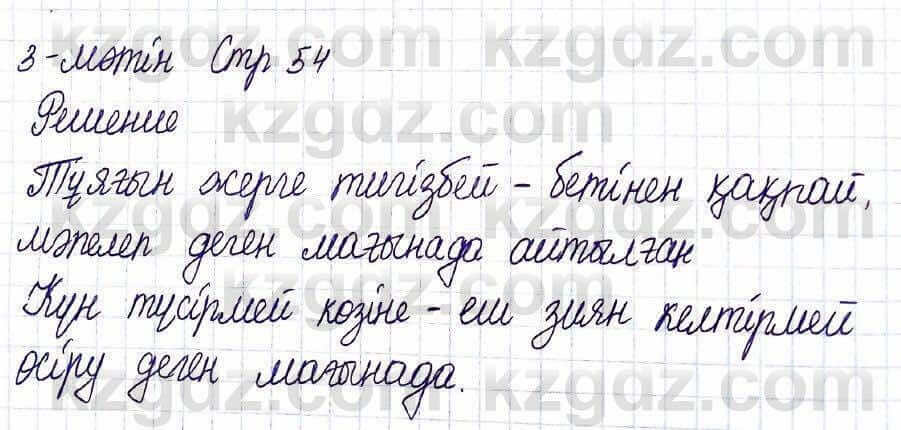 3-мәтін Стр 54
Решение
Тұяғын жерге тигізбей - бетінен қақпай,
мәпелеп деген мағынада айтылған
Күн түсірмей көзіне - еш зиян келтірмей
өсіру деген мағынада.
kzgdz.com kzgdz.com
kzgdz.com kzgdz.com
kzgdz.com kzgdz.com
kzgdz.com kzgdz.com
kzgdz.com kzgdz.com